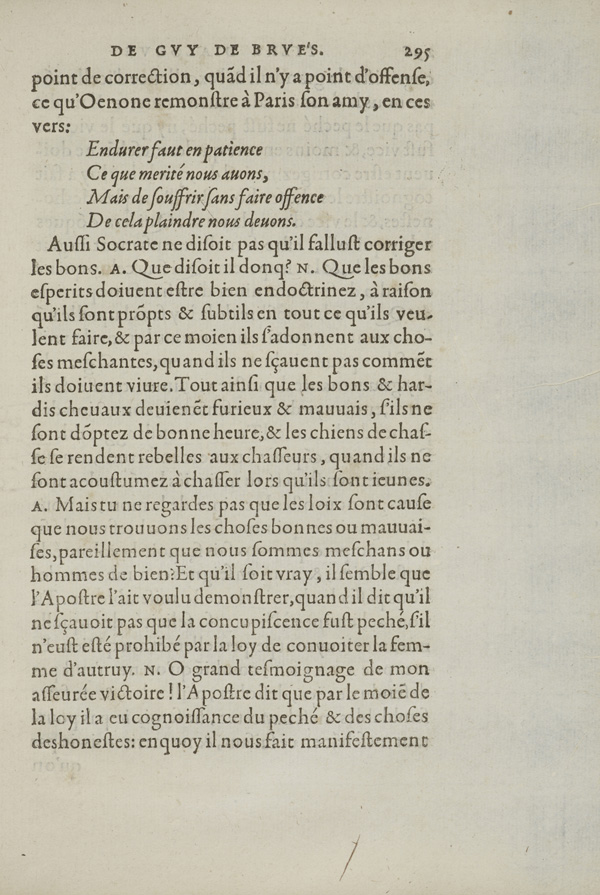 DE GVY DE BRVE'S. 295
point de correction, quãd il n'y a point d'offenſe,
ce qu'Oenone remonſtre à Paris ſon amy, en ces
vers:
Endurer faut en patience
Ce que merité nous auons,
Mais de ſouffrir ſans faire offence
De cela plaindre nous deuons.
Auſſi Socrate ne diſoit pas qu'il falluſt corriger
les bons. A. Que diſoit il donq? N. Que les bons
eſperits doiuent eſtre bien endoctrinez, à raiſon
qu'ils ſont prõpts & ſubtils en tout ce qu'ils veu-
lent faire, & par ce moien ils ſ'adonnent aux cho-
ſes meſchantes, quand ils ne ſçauent pas commẽt
ils doiuent viure. Tout ainſi que les bons & har-
dis cheuaux deuienẽt furieux & mauuais, ſ'ils ne
ſont dõptez de bonne heure, & les chiens de chaſ-
ſe ſe rendent rebelles aux chaſſeurs, quand ils ne
ſont acouſtumez à chaſſer lors qu'ils ſont ieunes.
A. Mais tu ne regardes pas que les loix ſont cauſe
que nous trouuons les choſes bonnes ou mauuai-
ſes, pareillement que nous ſommes meſchans ou
hommes de bien? Et qu'il ſoit vray, il ſemble que
l'Apoſtre l'ait voulu demonſtrer, quand il dit qu'il
ne ſçauoit pas que la concupiſcence fuſt peché, ſ'il
n'euſt eſté prohibé par la loy de conuoiter la fem-
me d'autruy. N. O grand teſmoignage de mon
aſſeurée victoire! l'Apoſtre dit que par le moiẽ de
la loy il a eu cognoiſſance du peché & des choſes
deshoneſtes: en quoy il nous fait manifeſtement